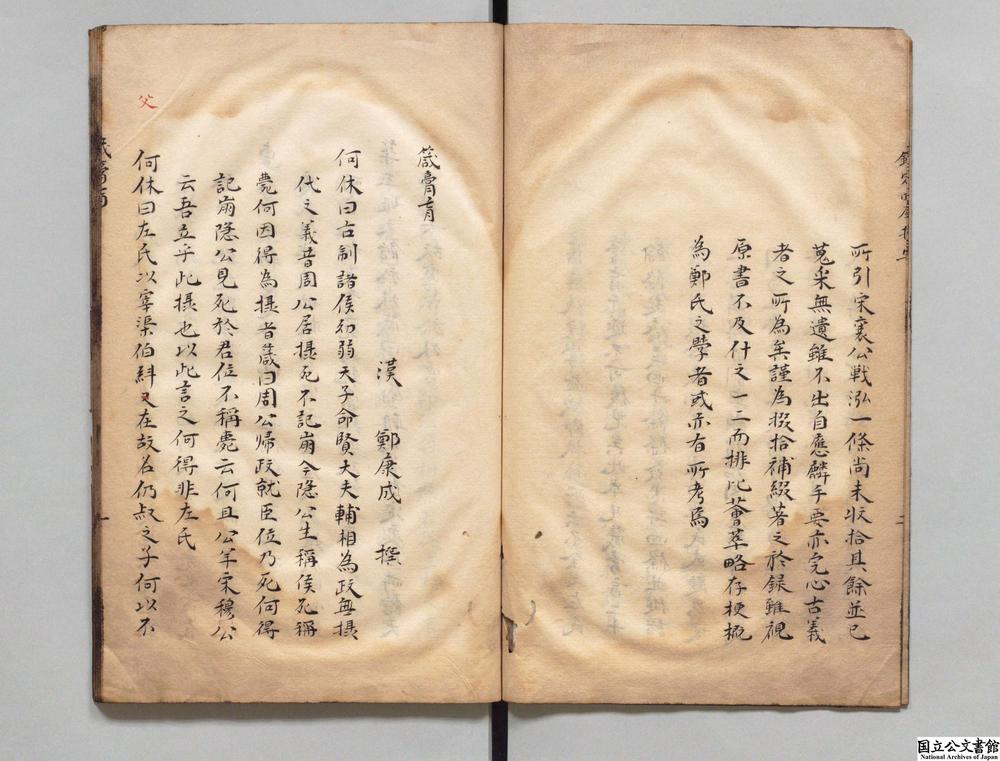 所引宋襄公戰泓一條尚未收拾其餘並已
蒐采無遺雖不出自應麟手要亦究心古義
者之所為矣謹為掇拾補綴著之於錄雖視
原書不及什之一二而排比薈萃略存梗概
為鄭氏之學者或亦有所考焉
箴膏肓
漢 鄭康成 撰
何休曰古制諸侯幼弱天子命賢大夫輔相為政無攝
代之義昔周公居攝死不記崩今隱公生稱侯死稱
薨何因得為攝者箴曰周公歸政就臣位乃死何得
記崩隱公見死於君位不稱薨云何且公羊宋穆公
云吾立乎此攝也以此言之何得非左氏
何休曰左氏以宰渠伯糾父在故名仍叔之子何以不
父
箴膏肓
一
国立公文書館
National Archives of Japan